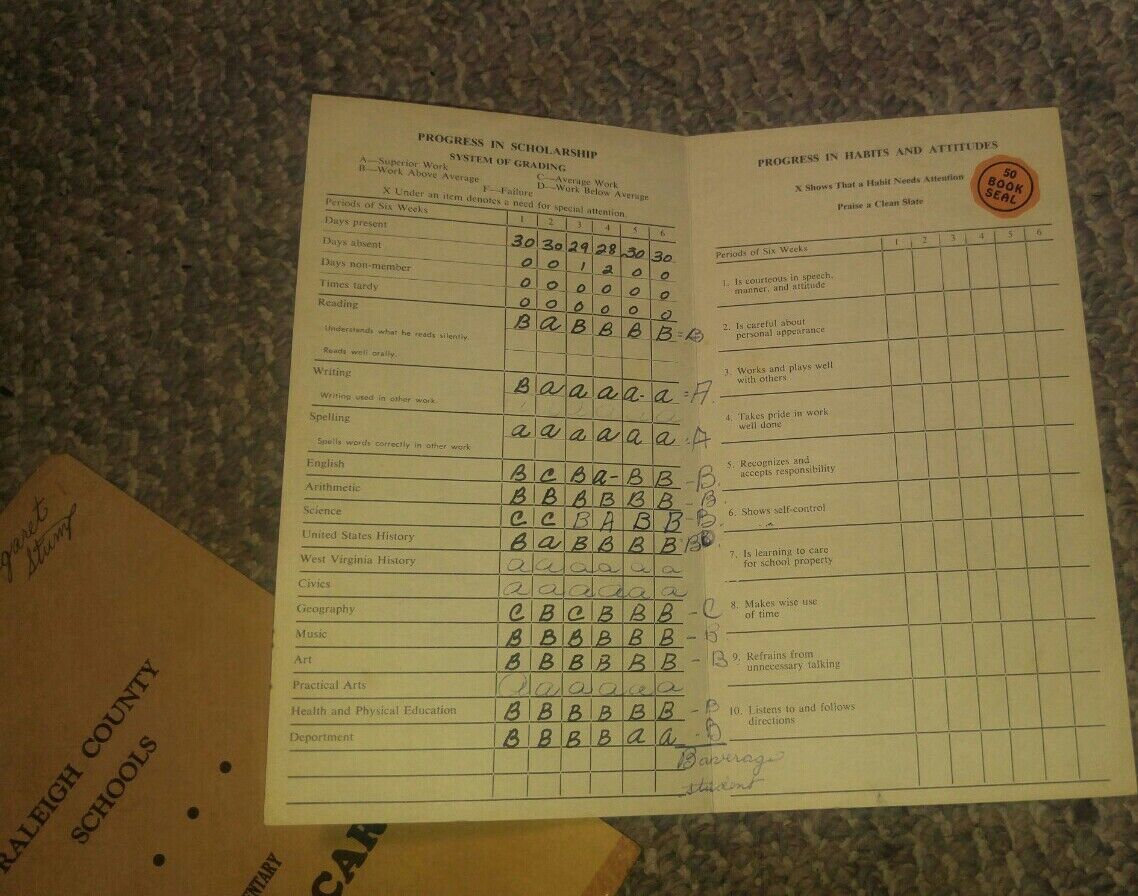 PROGRESS IN SCHOLARSHIP
SYSTEM OF GRADING
A—Superior Work C—Average Work
B—Work Above Average D—Work Below Average
F—Failure
X Under an item denotes a need for special attention.
Periods of Six Weeks 1 2 3 4 5 6
Days present 30 30 29 28 30 30
Days absent 0 0 1 2 0 0
Days non-member 0 0 0 0 0 0
Times tardy 0 0 0 0 0 0
Reading B a B B B B = B
Understands what he reads silently.
Reads well orally.
Writing B a a a a- a = A
Writing used in other work.
Spelling a a a a a a = A
Spells words correctly in other work
English B C B a- B B - B
Arithmetic B B B B B B - B
Science C C B A B B - B
United States History B a B B B B B
West Virginia History a a a a a a
Civics a a a a a a
Geography C B C B B B - C
Music B B B B B B - B
Art B B B B B B - B
Practical Arts a a a a a a
Health and Physical Education B B B B B B - B
Department B B B B a a - B
B average
student
PROGRESS IN HABITS AND ATTITUDES
X Shows That a Habit Needs Attention
Praise a Clean Slate
50
BOOK
SEAL
Periods of Six Weeks 1 2 3 4 5 6
1. Is courteous in speech,
manner, and attitude
2. Is careful about
personal appearance
3. Works and plays well
with others
4. Takes pride in work
well done
5. Recognizes and
accepts responsibility
6. Shows self-control
7. Is learning to care
for school property
8. Makes wise use
of time
9. Refrains from
unnecessary talking
10. Listens to and follows
directions
garet
Stump
RALEIGH COUNTY
SCHOOLS
NTARY
CAR